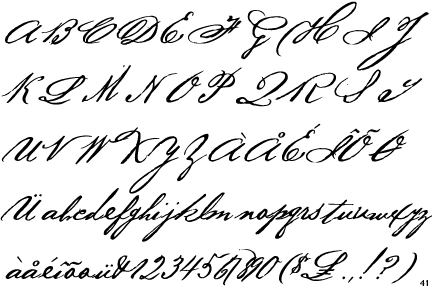 A B C D E F G H I J
K L M N O P Q R S T
U V W X Y Z À Å É Î Õ Ø
Ü a b c d e f g h i j k l m n o p q r s t u v w x y z
à å é î õ ø ü & 1 2 3 4 5 6 7 8 9 0 ( $ £ . , ! ? )
41